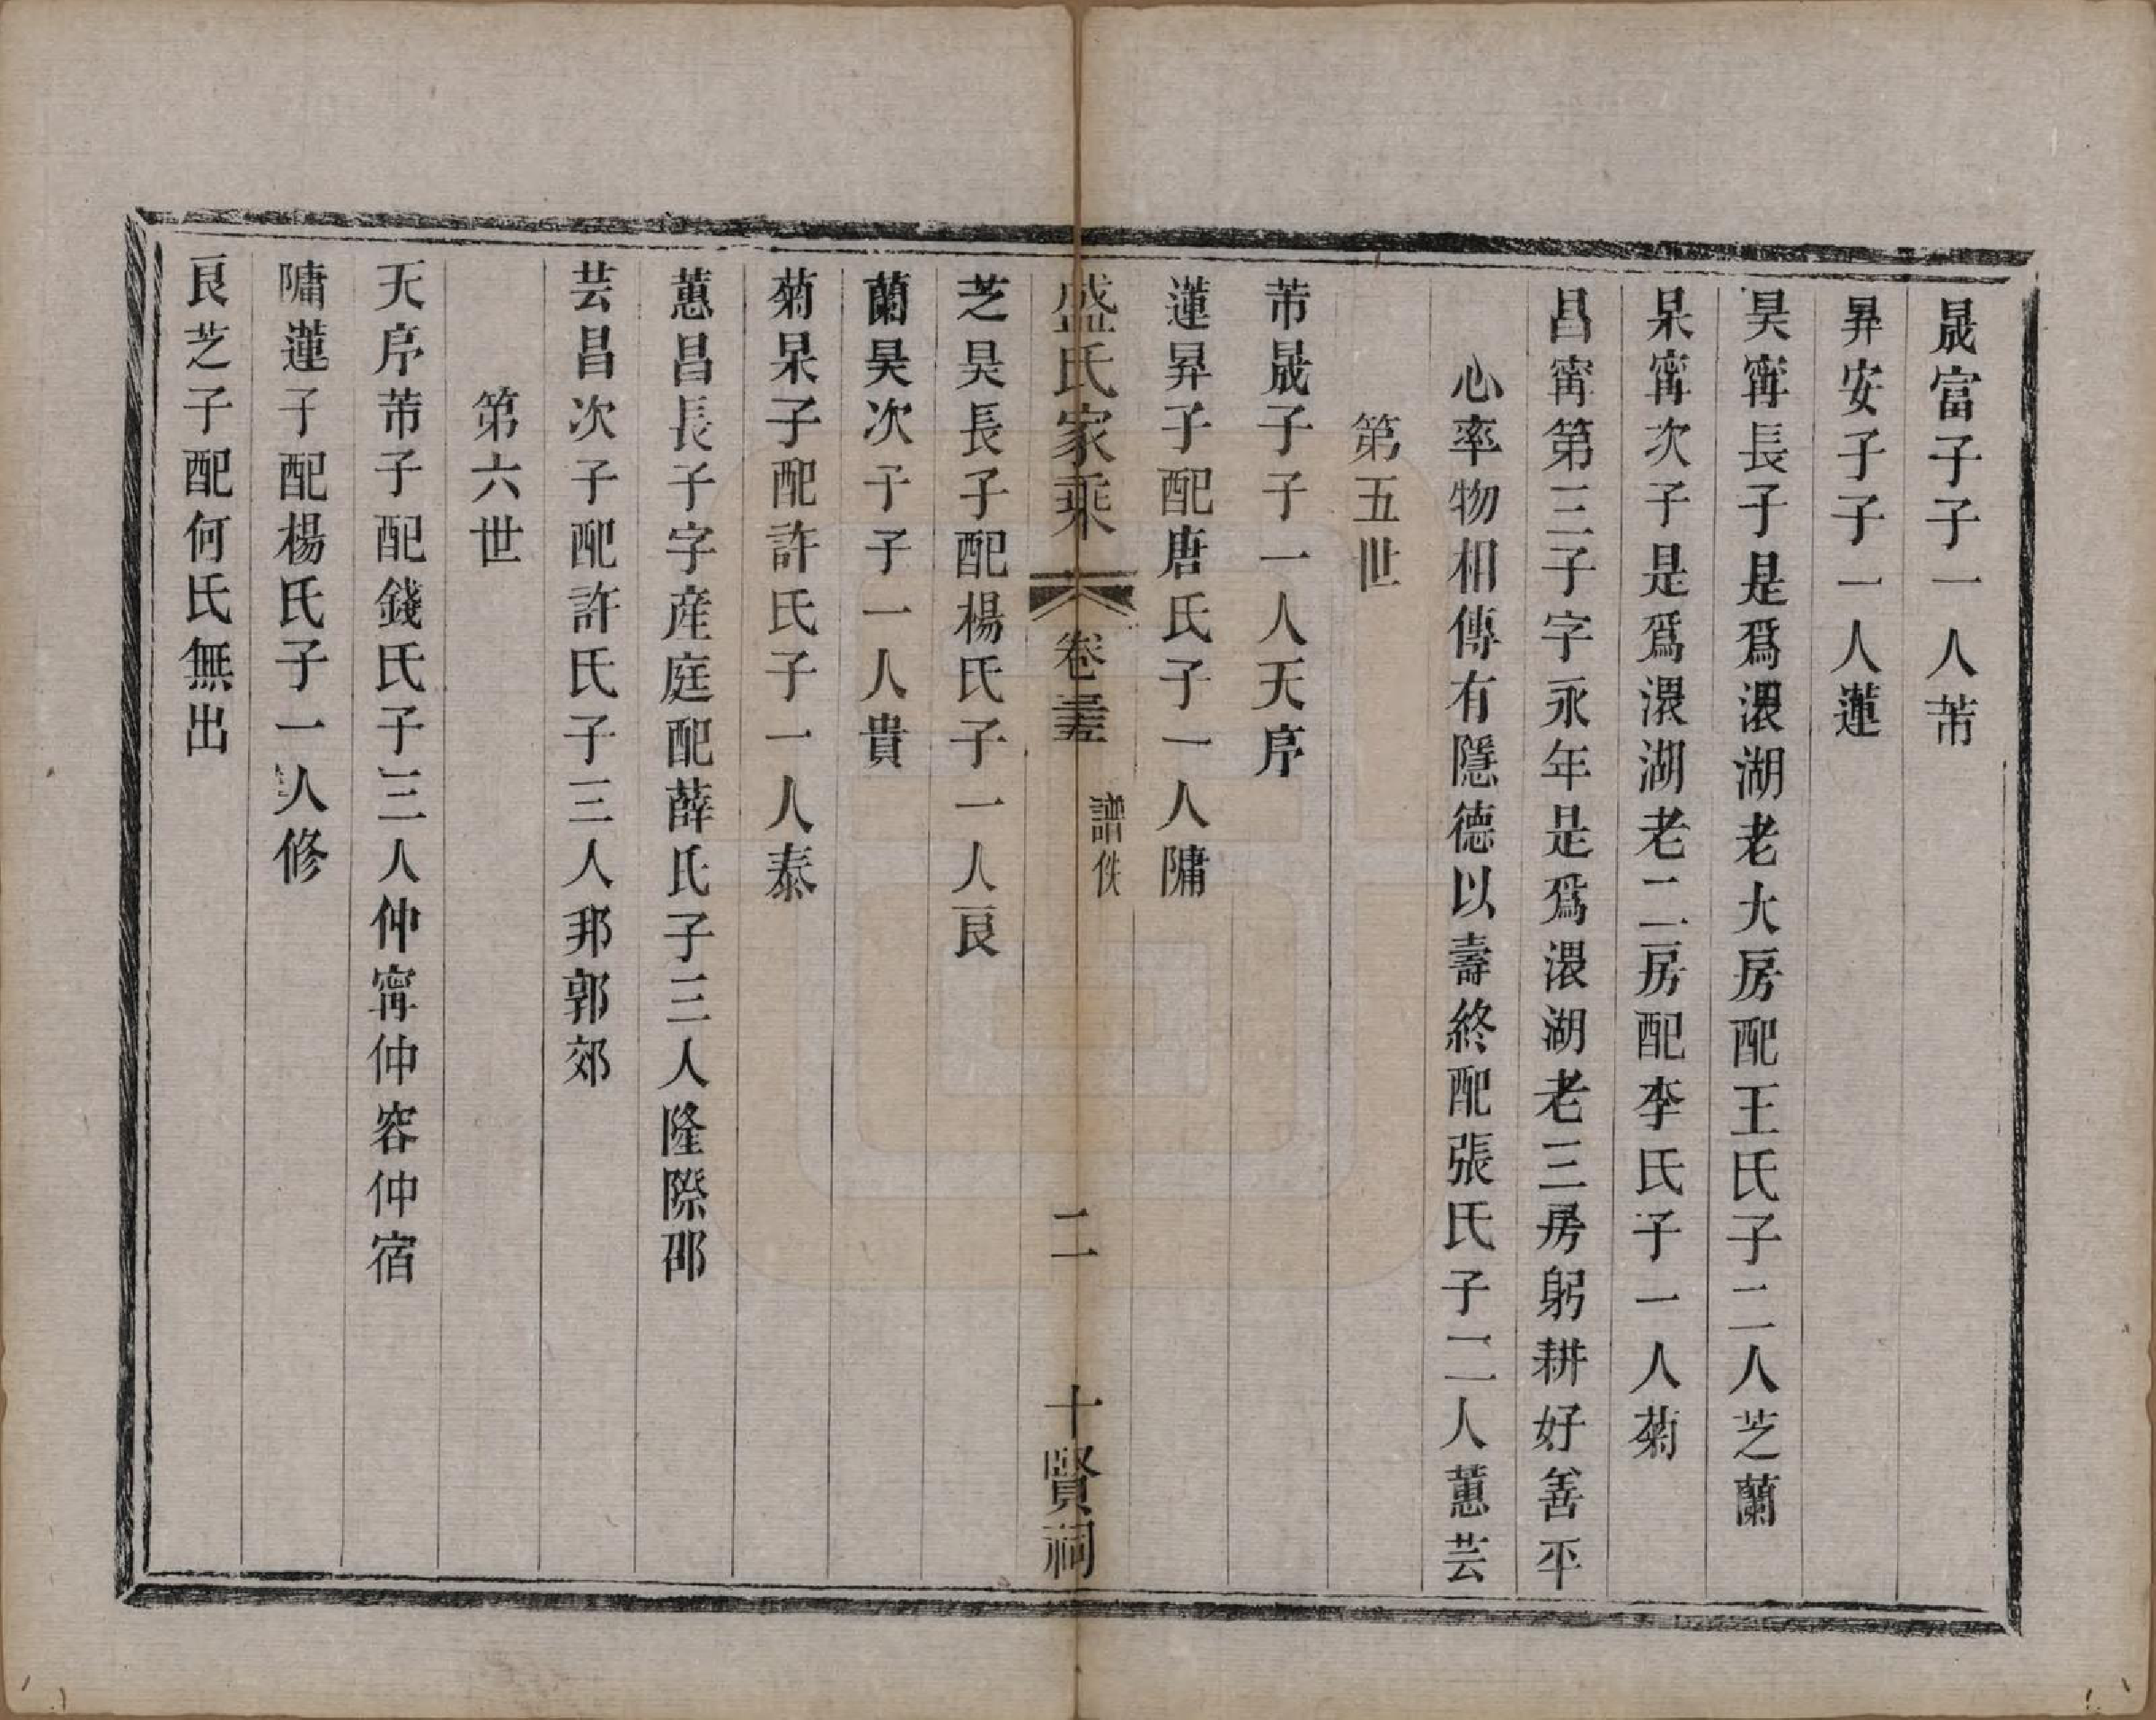 晟富子子一人芾
昇安子子一人蓮
昊甯長子是爲㴫湖老大房配王氏子二人芝蘭
杲甯次子是爲㴫湖老二房配李氏子一人菊
昌甯第三子字永年是爲㴫湖老三房躬耕好善平
心率物相傳有隱德以壽終配張氏子二人蕙芸
第五世
芾晟子子一人天序
蓮昇子配唐氏子一人隯
芝昊長子配楊氏子一人良
蘭昊次子子一人貴
菊杲子配許氏子一人泰
蕙昌長子字産庭配薛氏子三人隆際邵
芸昌次子配許氏子三人邦郭郊
第六世
天序芾子配錢氏子三人仲甯仲容仲宿
蓮子配楊氏子一人修
良芝子配何氏無出
盛氏家乘 卷 譜佚 二 十賢祠